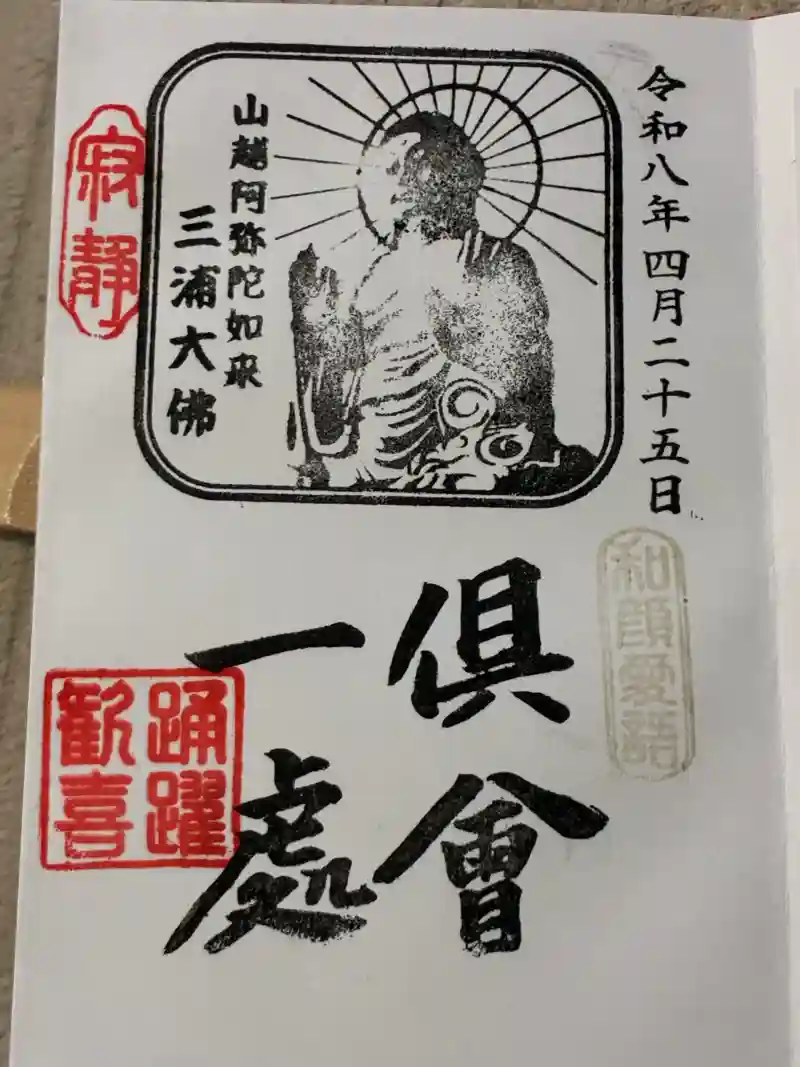 令和八年四月二十五日
和顔愛語
山越阿弥陀如来
三浦大佛
寂静
倶會
一處
踊躍
歓喜